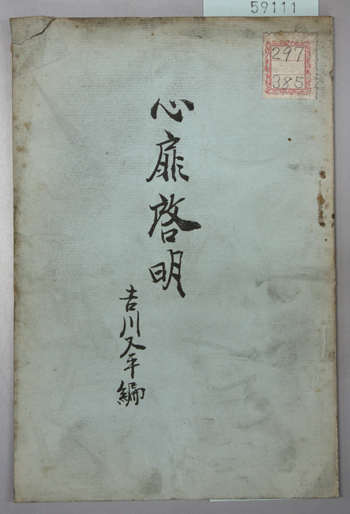 59111
297
385
心扉啓明
吉川又平編